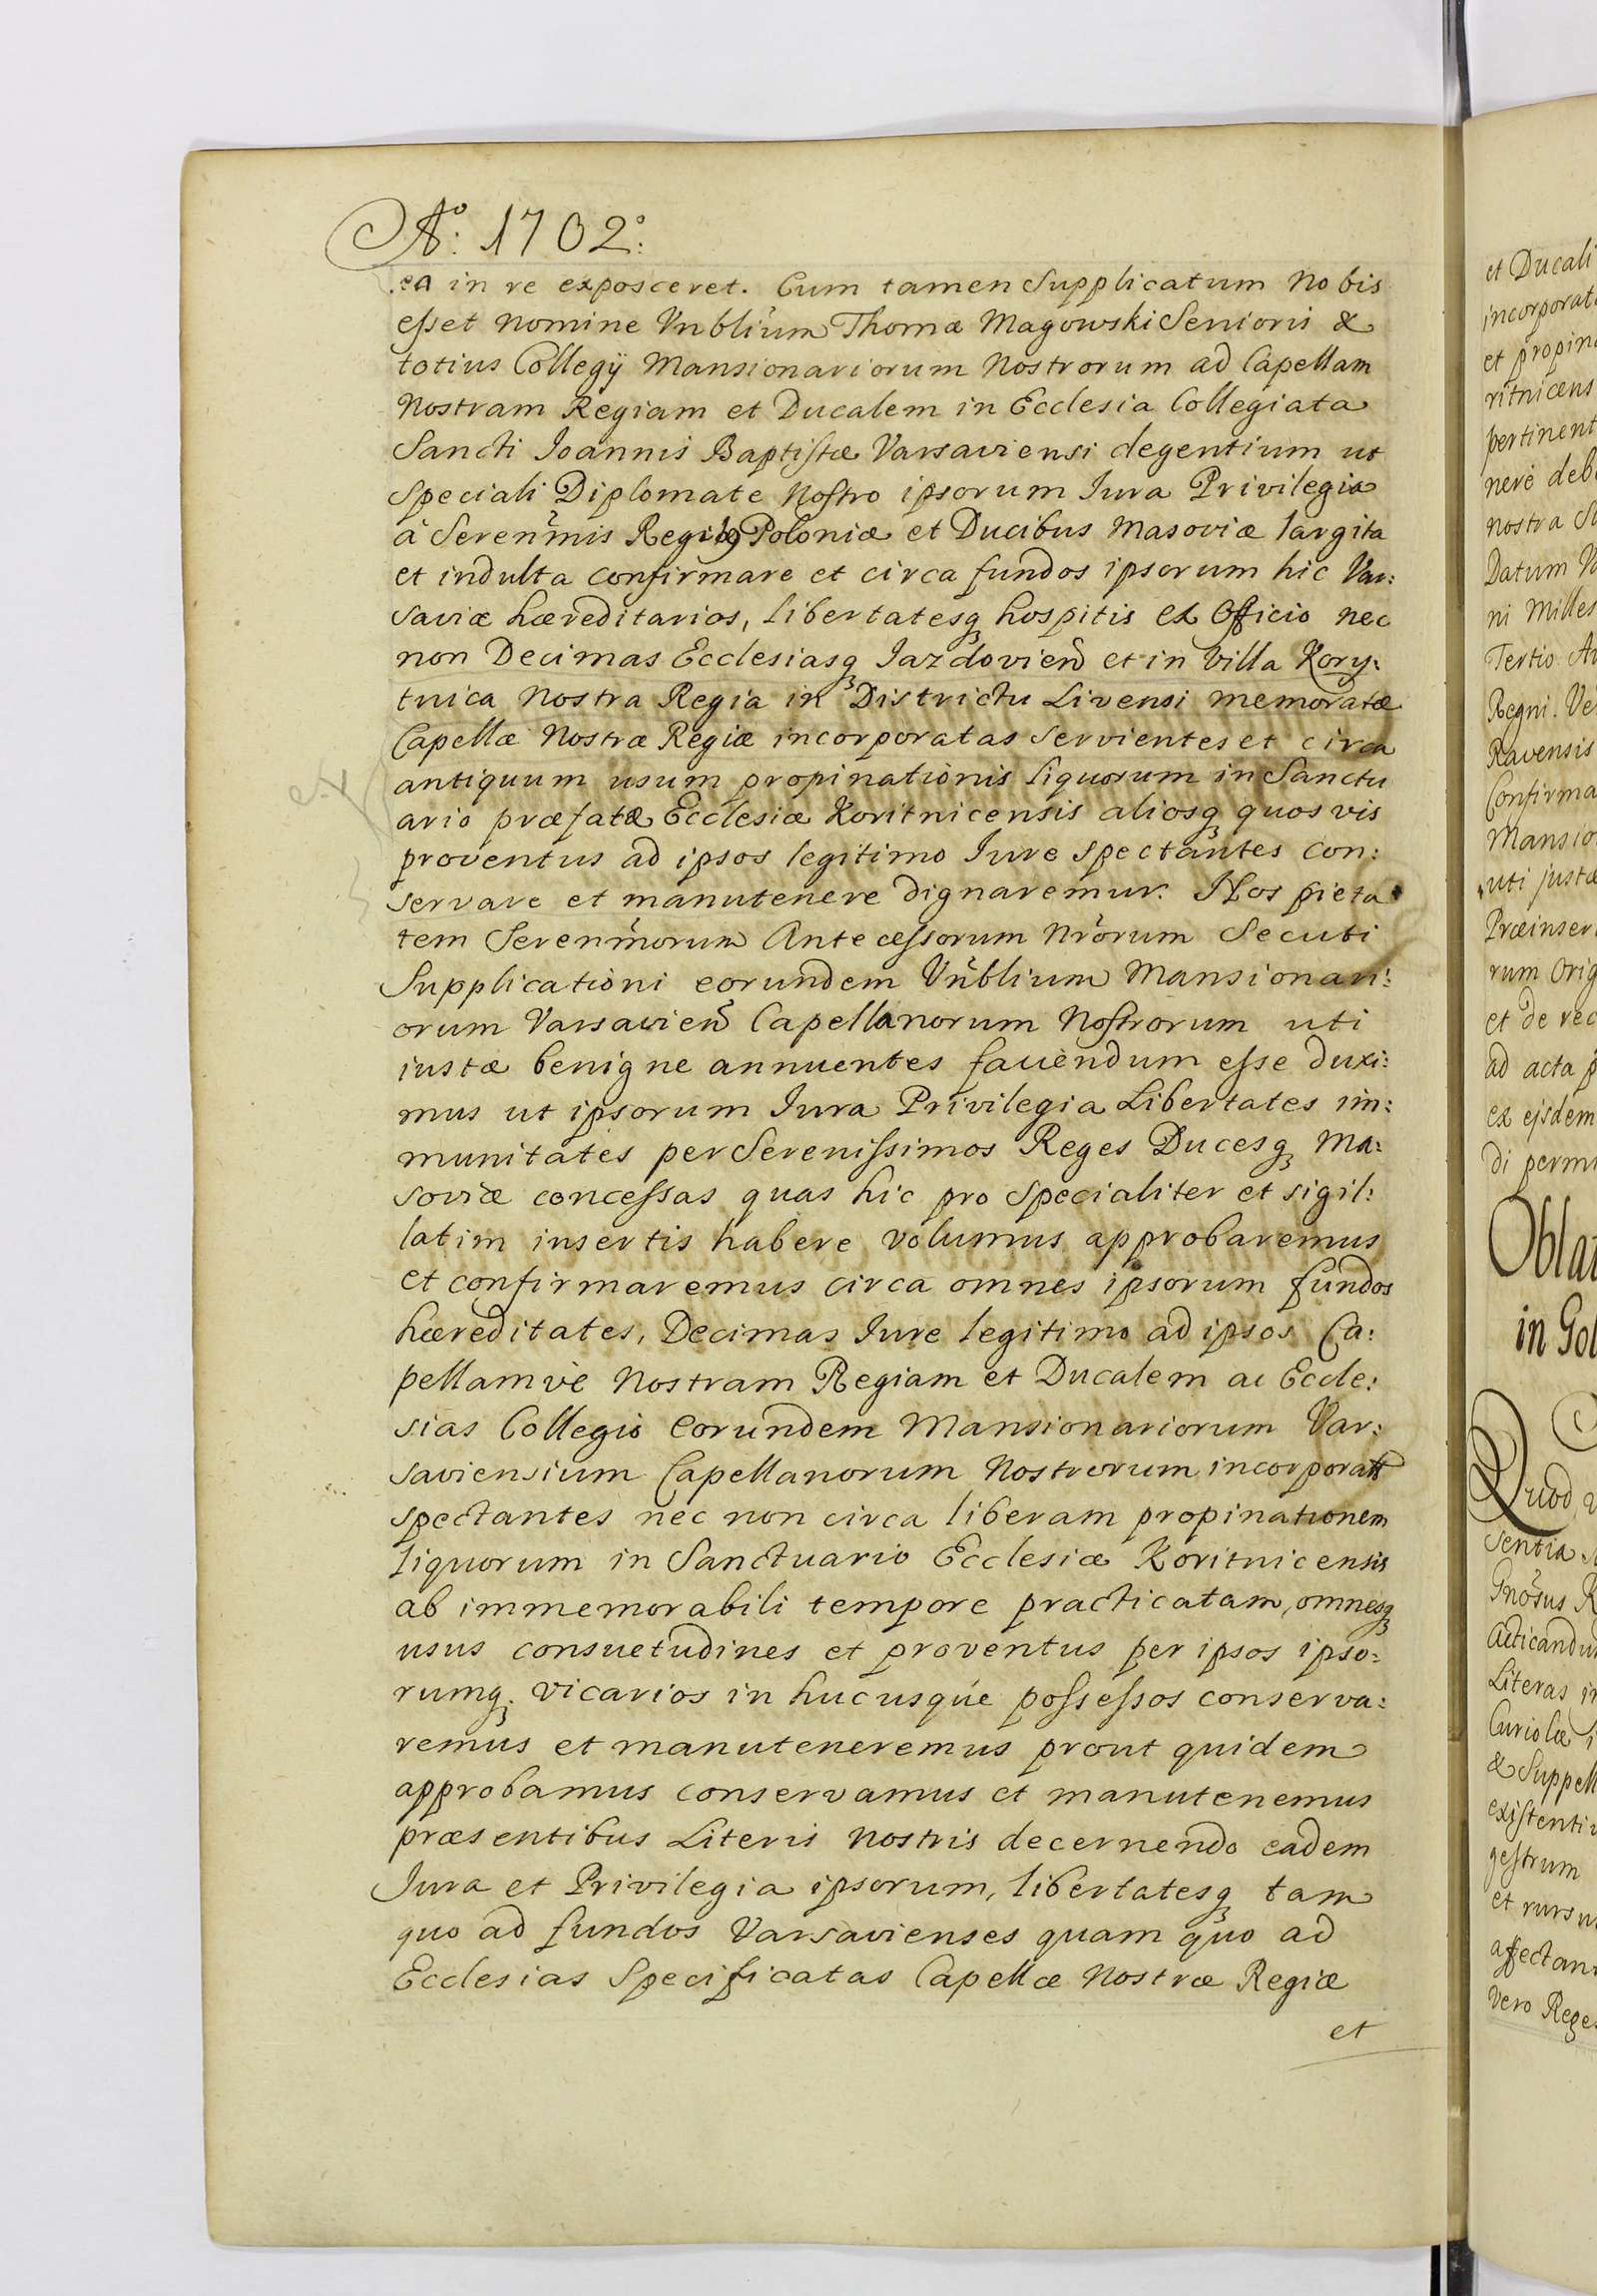 Aº: 1702º:
ea in re exposceret. Cum tamen Supplicatum Nobis
eſset nomine Vnblium Thomæ Magowski Senioris &
totius Collegÿ Mansionariorum Nostrorum ad Capellam
Nostram Regiam et Ducalem in Ecclesia Collegiata
Sancti Joannis Baptiſtæ Varsaviensi degentium ut
Speciali Diplomate Noſtro ipsorum Jura Privilegia
à Serenmis Regibꝰ Poloniæ et Ducibus Masoviæ largita
et indulta confirmare et circa fundos ipsorum hic Var:
saviæ hæreditarios, libertatesqꝫ hospitis ex Officio nec
non Decimas Ecclesiasqꝫ Jazdovien̄ et in Villa Kory:
tnica Nostra Regia in Districtu Livensi memoratæ
Capellæ Nostræ Regiæ incorporatas Servientes et circa
antiquum usum propinationis liquorum in Sanctu
ario præfatæ Ecclesiæ Koritnicensis aliosqꝫ quosvis
proventus ad ipsos legitimo Jure Spectantes con:
servare et manutenere dignaremur. Nos pieta
tem Serenmorum Anteceſsorum Nrorum Secuti
Supplicationi eorundem Vnblium Mansionari:
orum Varsavien̄ Capellanorum Noſtrorum uti
iustæ benigne annuentes favendum eſse duxi:
mus ut ipsorum Jura Privilegia Libertates im:
munitates per Sereniſsimos Reges Ducesqꝫ Ma:
soviæ conceſsas quas hic pro Specialiter et sigil:
latim insertis habere volumus approbaremus
et confirmaremus circa omnes ipsorum fundos
hæreditates, Decimas Jure legitimo ad ipsos Ca:
pellamvè Nostram Regiam et Ducalem ac Eccle:
sias Collegio eorundem Mansionariorum Var:
saviensium Capellanorum Nostrorum incorporatt
spectantes nec non circa liberam propinationem
liquorum in Sanctuario Ecclesiæ Koritnicensis
ab immemorabili tempore practicatam, omnesqꝫ
usus consuetudines et proventus per ipsos ipso:
rumqꝫ vicarios in hucusque poſseſsos conserva:
remus et manuteneremus prout quidem
approbamus conservamus et manutenemus
præsentibus Literis Nostris decernendo eadem
Jura et Privilegia ipsorum, libertatesqꝫ tam
quo ad fundos Varsavienses quam quo ad
Ecclesias Specificatas Capellæ Nostræ Regiæ
et
et Ducali
incorporat
et propin
ritnicens
pertinent
nere deb
nostra
Datum
ni Milles
Tertio
Regni. Ve
Ravensis
Confirma
Mansio
uti justæ
Præinser
rum Orig
et de rec
ad acta p
ex ejsdem
di permi
Oblat
in Gol
Quod
Sentia
Gnosus R
acticandu
Literas in
Curiolæ
& Suppell
exiſtenti
geſtrum
et rursu
affectan
Vero Rege